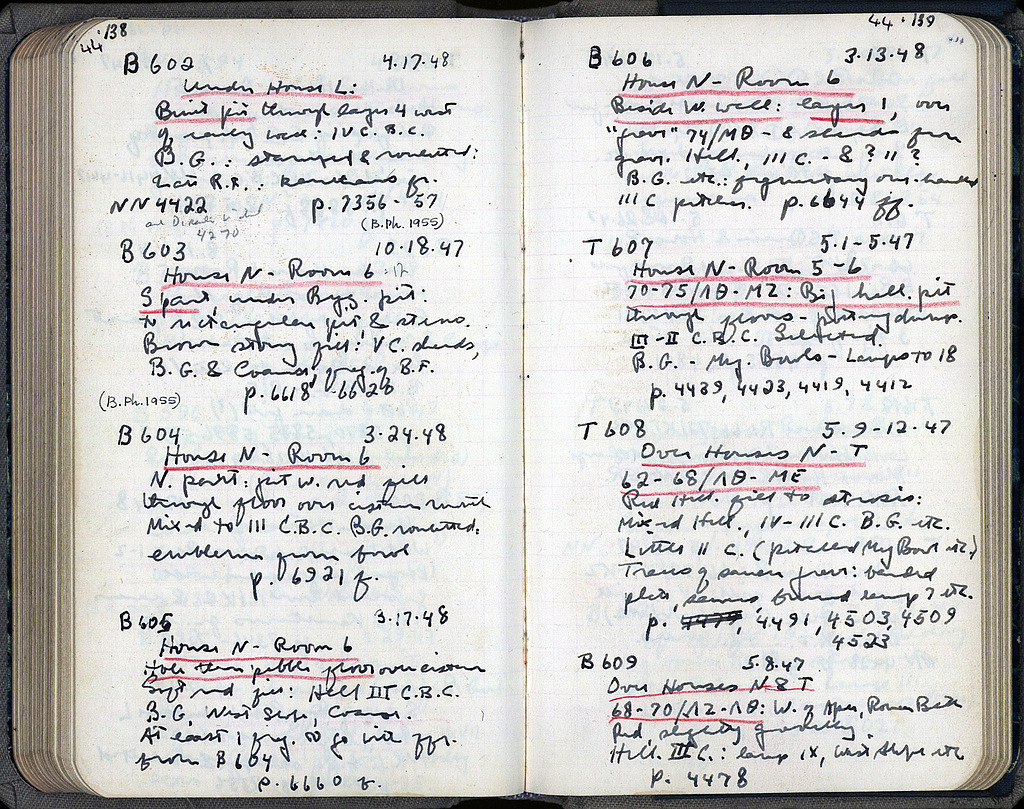 44 · 138
B 602 4.17.48
Under House L:
Burnt pit through layer 4 west
of early wall: IV C. B.C.
B.G.: stamped & rouletted:
Late R.F.: kantharos fr.
NN 4422 p. 7356-'57
4270
(B.Ph. 1955)
B 603 10.18.47
House N - Room 6 :12
S part, under Byz. pit:
rectangular pit & steno.
Brown stony fill: V C. sherds,
B.G. & Coarse, frag. of B.F.
p. 6618 - 6628
(B.Ph. 1955)
B 604 3.24.48
House N - Room 6
N. part: pit w. red fill
through floor over cistern mouth
Mixed to III C.B.C. B.G. rouletted:
emblema from bowl
p. 6921 f.
B 605 3.17.48
House N - Room 6
Hole thru pebble floor over cistern
Soft red fill: Hell III C.B.C.
B.G, West Slope, Coarse.
At least 1 frg. to go with ffr.
from B 604
p. 6660 f.
44 · 139
B 606 3.13.48
House N - Room 6
Beside W. wall: layer 1, over
"grave" 74/ΜΘ - & sherds from
grave. Hell., III C. - & ? II ?
B.G. etc.: fragmentary one-handled
III C pitcher. p. 6644 ff.
T 607 5.1-5.47
House N - Room 5-6
70-75/ΛΘ-ΜΖ: Big hell. pit
through floors - dump.
III-II C.B.C. Selected.
B.G. - Meg. Bowls - Lamps to 18
p. 4439, 4423, 4419, 4412
T 608 5.9-12.47
Over Houses N-T
62-68/ΛΘ-ΜΕ
Red Hill. fill to strosis:
Mixed Hell., IV-III C. B.G. etc.
Little II C. (pitched Meg Bowl etc.)
Trans of grave: banded
plate, found lamp 7 etc.
p. 4479, 4491, 4503, 4509
4523
B 609 5.8.47
Over Houses N & T
68-70/ΛΖ-ΛΘ: W. of Apse, Roman Bath
Red slightly gravelly
Hell. III C.: lamp IX, west slope etc.
p. 4478